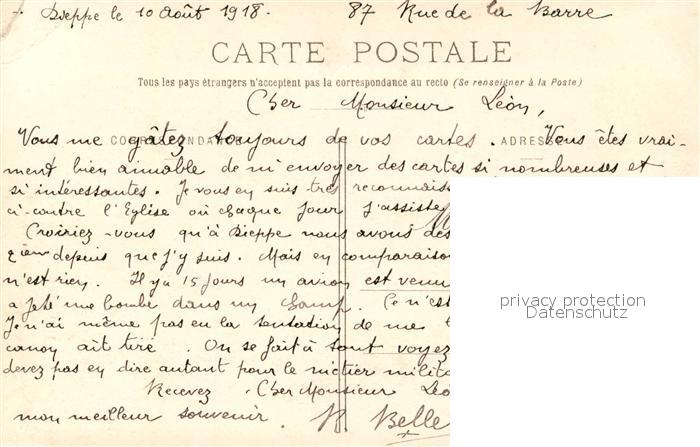 Dieppe le 10 Août 1918. 87 Rue de la Barre
CARTE POSTALE
Tous les pays étrangers n'acceptent pas la correspondance au recto (Se renseigner à la Poste)
Cher Monsieur Léon,
CORRESPONDANCE ADRESSE
Vous me gâtez toujours de vos cartes. Vous êtes vrai-
ment bien aimable de m'envoyer des cartes si nombreuses et
si intéressantes. Je vous en suis très reconnaiss
ci-contre l'Eglise où chaque jour j'assiste
Croiriez-vous qu'à Dieppe nous avons des
depuis que j'y suis. Mais en comparaison
n'est rien. Il y a 15 jours un avion est venu
a jeté une bombe dans un champ. Ce n'est
Je n'ai même pas eu la tentation de me
canon ait tiré. On se fait à tout voyez
devez pas en dire autant pour le métier milita
Recevez Cher Monsieur Léo
mon meilleur souvenir. Belle
privacy protection
Datenschutz